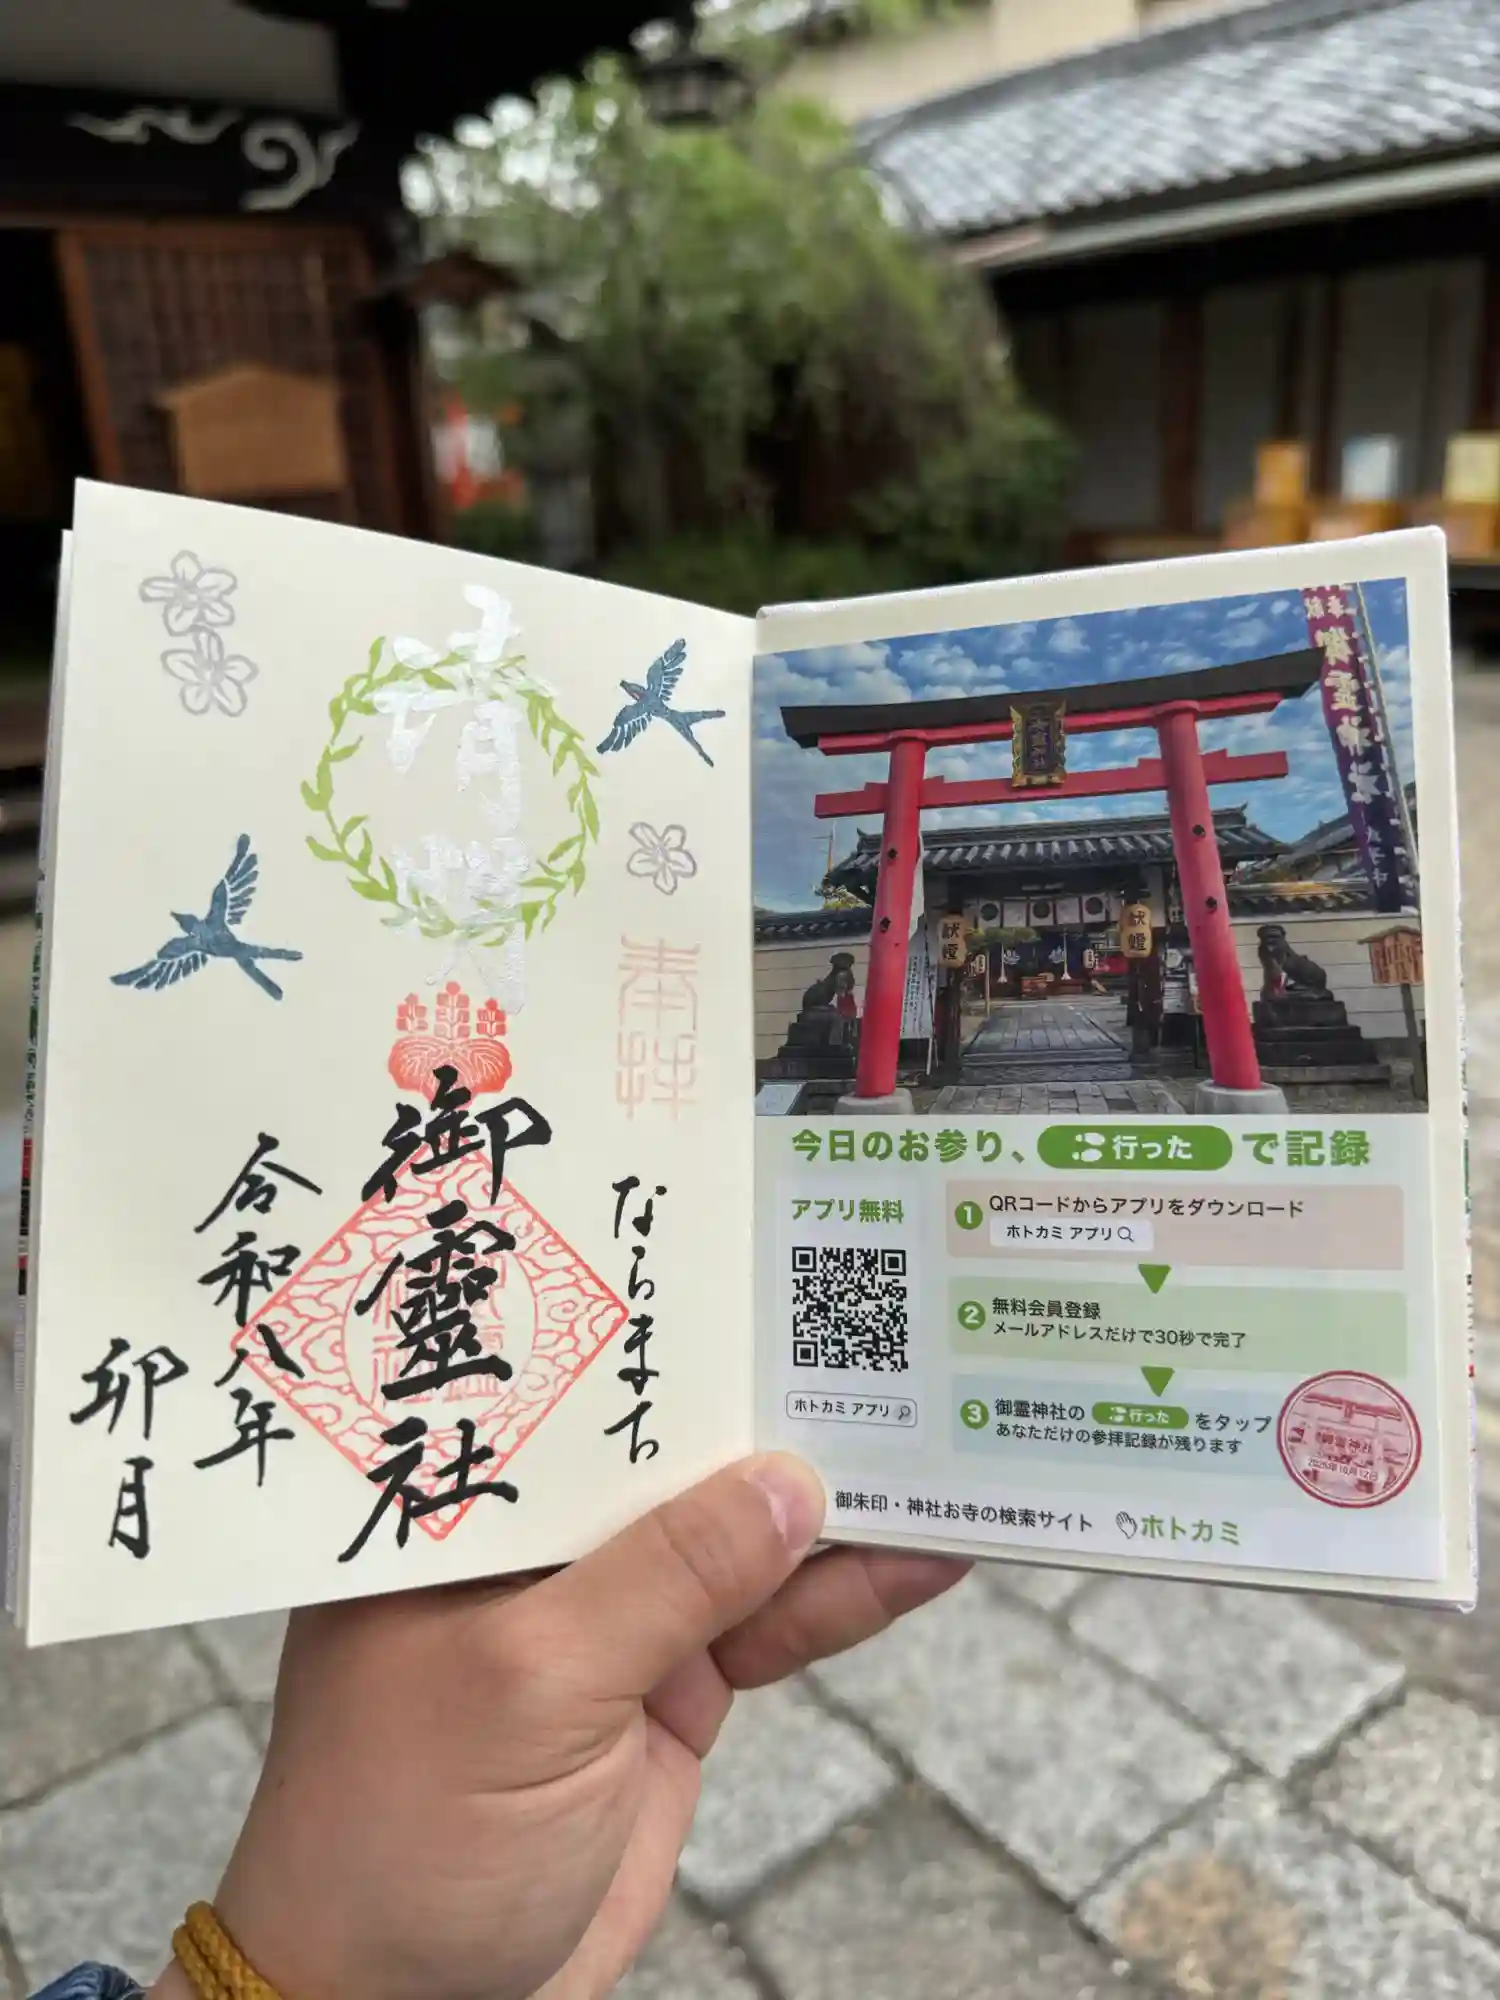 清明
奉拝
ならまち
御靈社
令和八年
卯月
御霊神社
献燈
献燈
今日のお参り、行ったで記録
アプリ無料
ホトカミ アプリ
1 QRコードからアプリをダウンロード
ホトカミ アプリ
2 無料会員登録
メールアドレスだけで30秒で完了
3 御霊神社の 行った をタップ
あなただけの参拝記録が残ります
御霊神社
2025年10月12日
御朱印・神社お寺の検索サイト ホトカミ